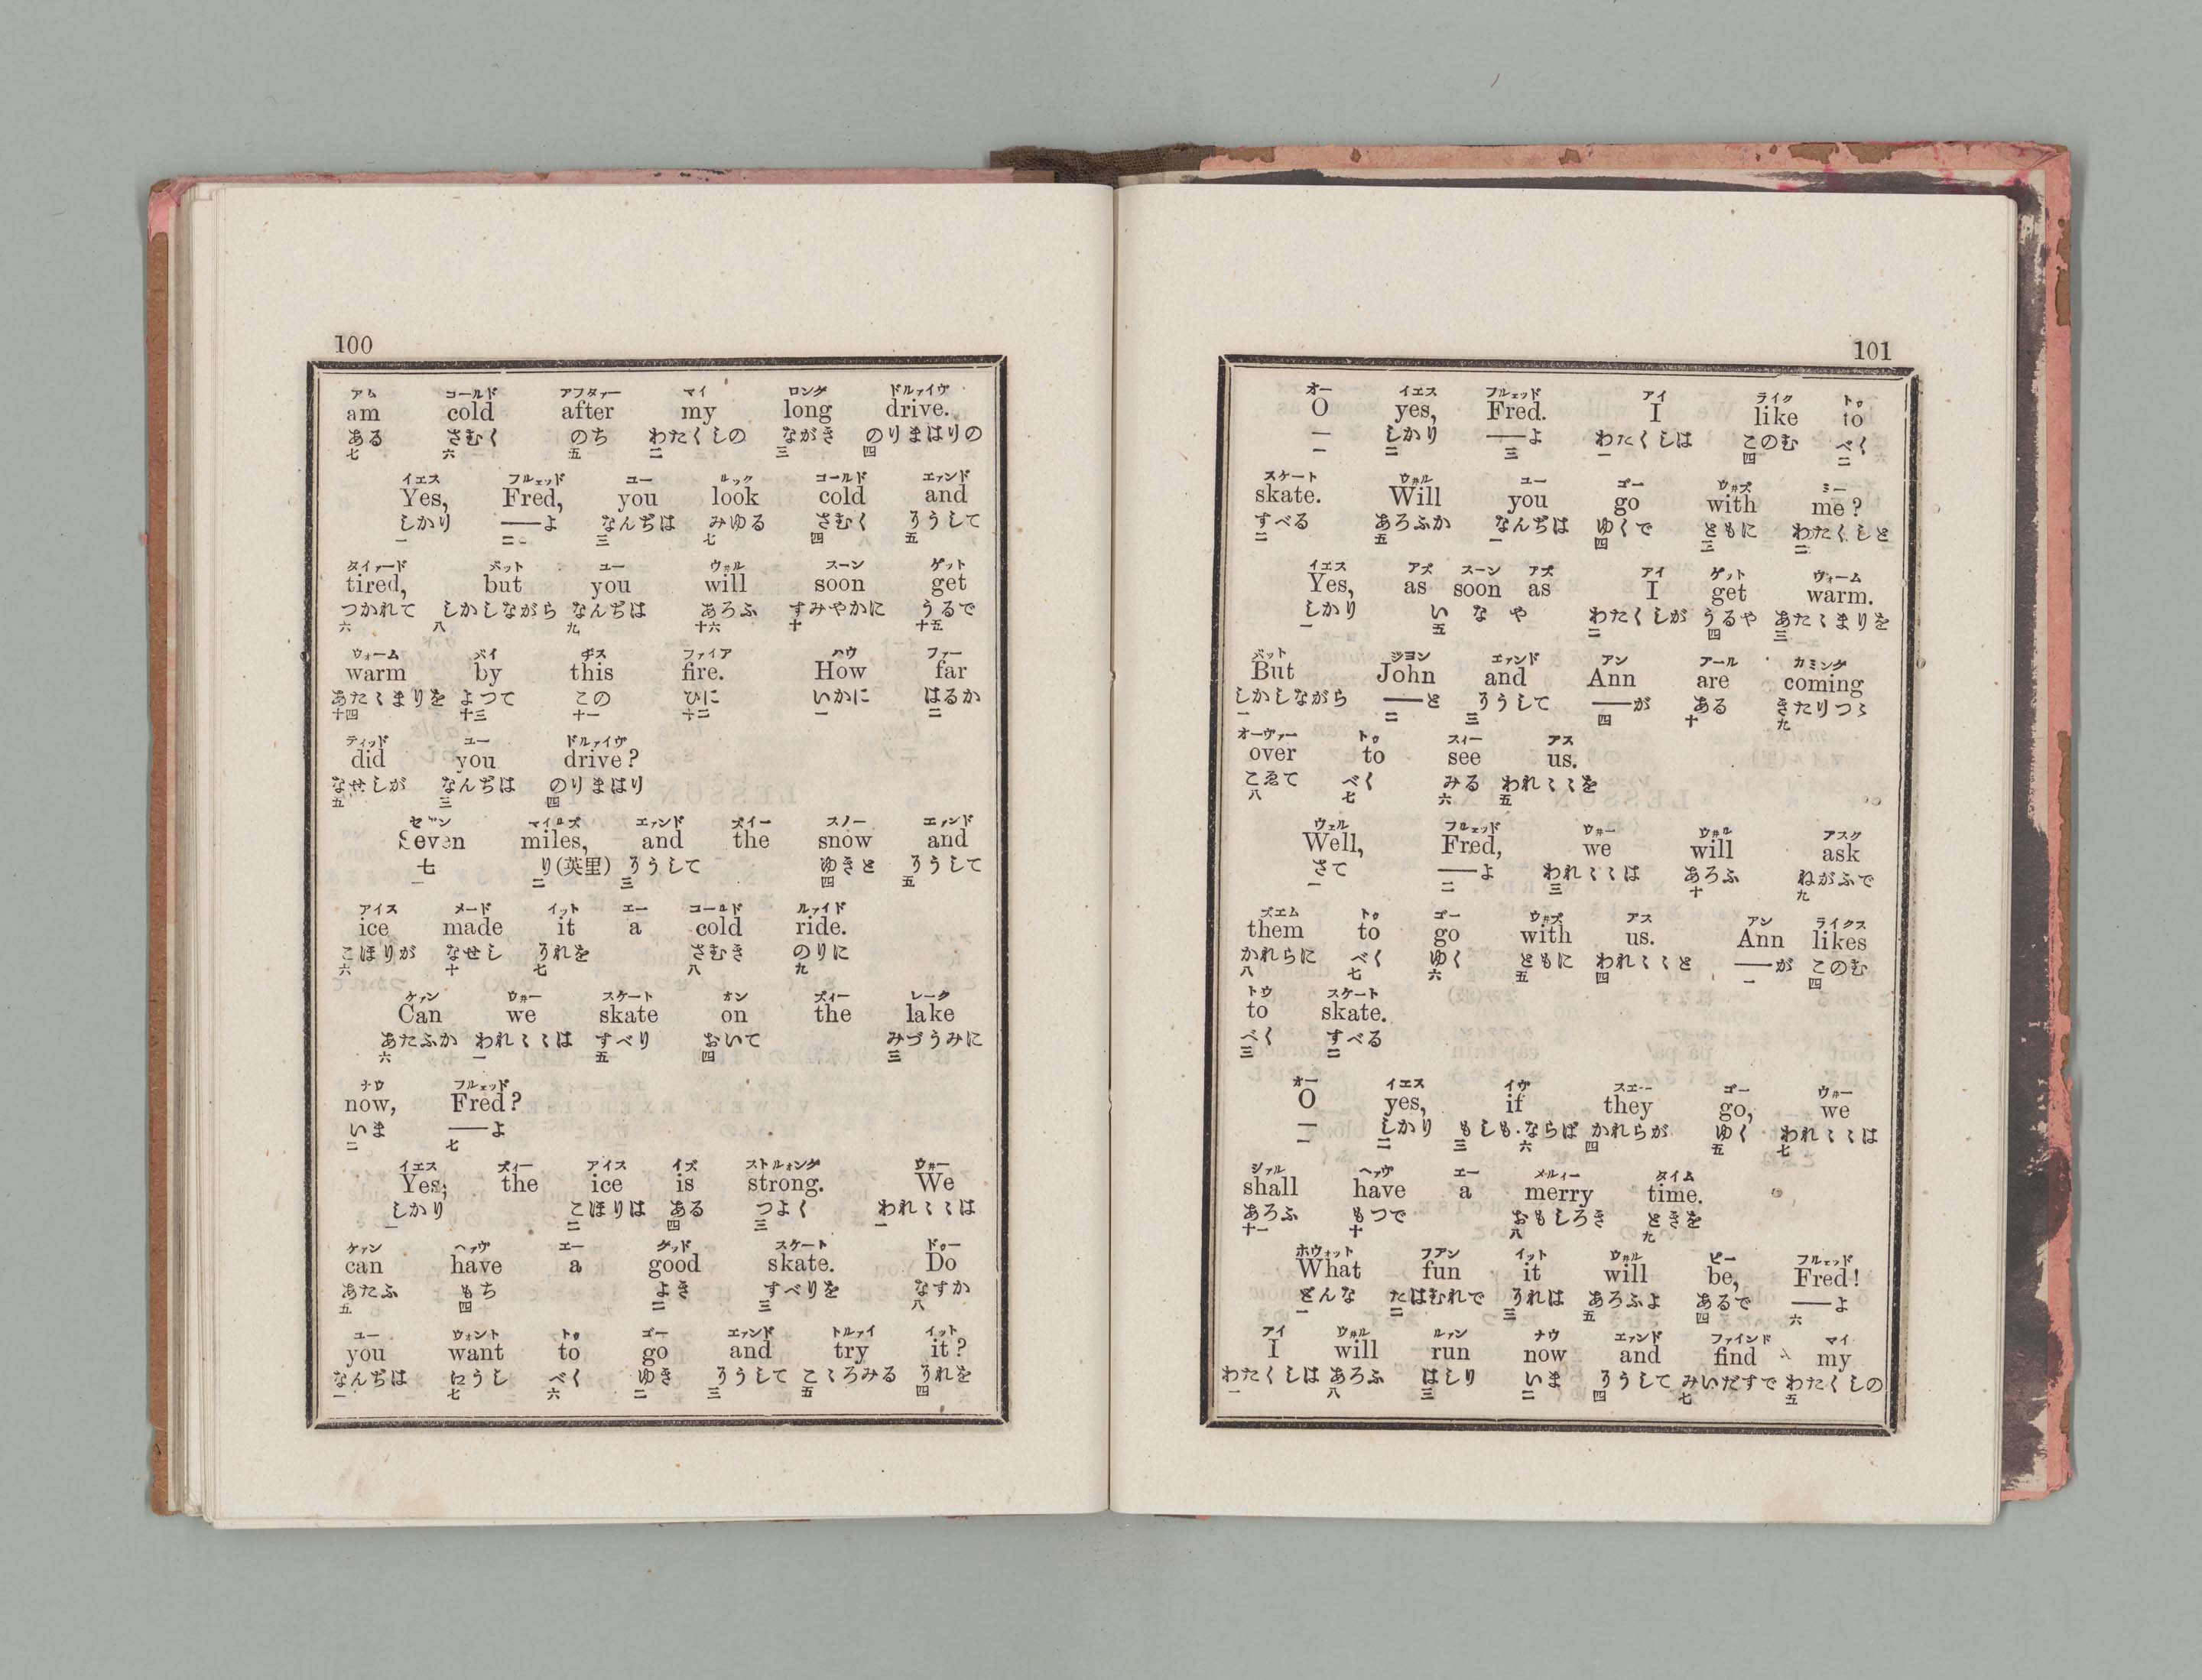 100
アム コールド アフタァー マイ ロング ドルァイヴ
am cold after my long drive.
ある さむく のち わたくしの ながき のりまはりの
七 六 五 二 三 四
イエス フルェッド ユー ルック コールド エァンド
Yes, Fred, you look cold and
しかり ——よ なんぢは みゆる さむく そうして
一 二 三 七 四 五
タイァード バット ユー ウヰル スーン ゲット
tired, but you will soon get
つかれて しかしながら なんぢは あろふ すみやかに うるで
六 八 九 十六 十 十五
ウォーム バイ ヂス ファイア ハウ ファー
warm by this fire. How far
あたゝまりを よつて この ひに いかに はるか
十四 十三 十一 十二 一 二
ディッド ユー ドルァイヴ
did you drive?
なせしが なんぢは のりまはり
五 三 四
セヴン マイルズ エァンド ズイー スノー エァンド
Seven miles, and the snow and
七 り(英里) そうして ゆきと そうして
一 二 三 四 五
アイス メード イット エー コールド ルァイド
ice made it a cold ride.
こほりが なせし それを さむき のりに
六 十 七 八 九
ケァン ウヰー スケート オン ズィー レーク
Can we skate on the lake
あたふか われゝゝは すべり おいて みづうみに
六 一 五 四 三
ナウ フルェッド
now, Fred?
いま ——よ
二 七
イエス ズィー アイス イズ ストルォング ウヰー
Yes; the ice is strong. We
しかり こほりは ある つよく われゝゝは
一 二 四 三 一
ケァン ヘァヴ エー グッド スケート ドゥー
can have a good skate. Do
あたふ もち よき すべりを なすか
五 四 二 三 八
ユー ウォント トゥ ゴー エァンド トルァイ イット
you want to go and try it?
なんぢは ほうし べく ゆき そうして こゝろみる それを
一 七 六 二 三 五 四
101
オー イエス フルェッド アイ ライク トゥ
O yes, Fred. I like to
— しかり ——よ わたくしは このむ べく
一 二 三 一 四 二
スケート ウヰル ユー ゴー ウヰズ ミー
skate. Will you go with me?
すべる あろふか なんぢは ゆくで ともに わたくしと
二 五 一 四 三 二
イエス アズ スーン アズ アイ ゲット ウォーム
Yes, as soon as I get warm.
しかり い な や わたくしが うるや あたゝまりを
一 五 二 四 三
バット ジヨン エァンド アン アール カミング
But John and Ann are coming
しかしながら ——と そうして ——が ある きたりつゝ
一 二 三 四 十 九
オーヴァー トゥ スィー アス
over to see us.
こゑて べく みる われゝゝを
八 七 六 五
ウェル フルェッド ウヰー ウヰル アスク
Well, Fred, we will ask
さて ——よ われゝゝは あろふ ねがふで
一 二 三 十 九
ズエム トゥ ゴー ウヰズ アス アン ライクス
them to go with us. Ann likes
かれらに べく ゆく ともに われゝゝと ——が このむ
八 七 六 五 四 一 四
トウ スケート
to skate.
べく すべる
三 二
オー イエス イヴ ズエー ゴー ウヰー
O yes, if they go, we
— しかり もしも・ならば かれらが ゆく われゝゝは
一 二 三 六 四 五 七
シァル ヘァヴ エー メルィー タイム
shall have a merry time.
あろふ もつで おもしろき ときを
十一 十 八 九
ホウォット フアン イット ウヰル ビー フルェッド
What fun it will be, Fred!
どんな たはむれで それは あろふよ あるで ——よ
一 二 三 五 四 六
アイ ウヰル ルァン ナウ エァンド ファインド マイ
I will run now and find my
わたくしは あろふ はしり いま そうして みいだすで わたくしの
一 八 三 二 四 七 五